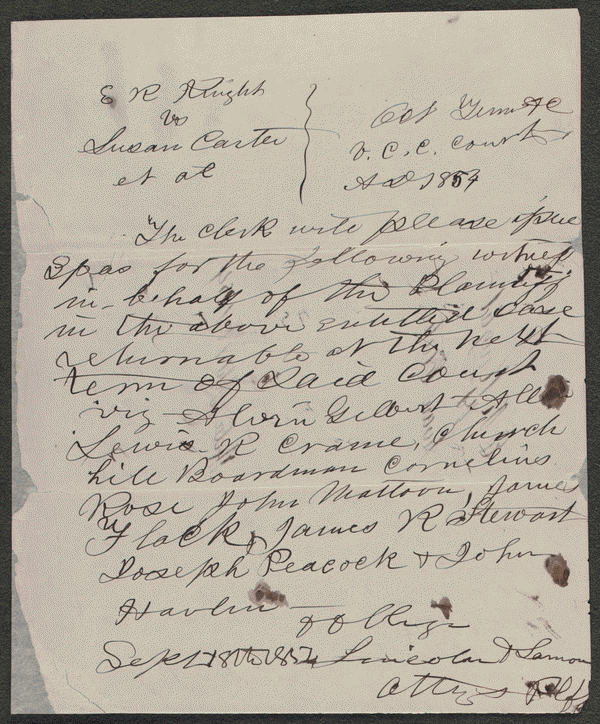 E R Knight
vs
Susan Carter
et al
Oct Term
V. C. C. Court
AD 1854
The clerk will please issue
Spas for the following witness
in behalf of the Plaintiff
in the above entitled case
returnable at the next
term of said Court
viz Alvin Gilbert
Lewis R Crame, Church
hill Boardman Cornelius
Rose John Mattoon, James
Flack, James R Stewart
Joseph Peacock & John
Havlin
Sept 18th 1854 Lincoln & Lamon
Attys Plff